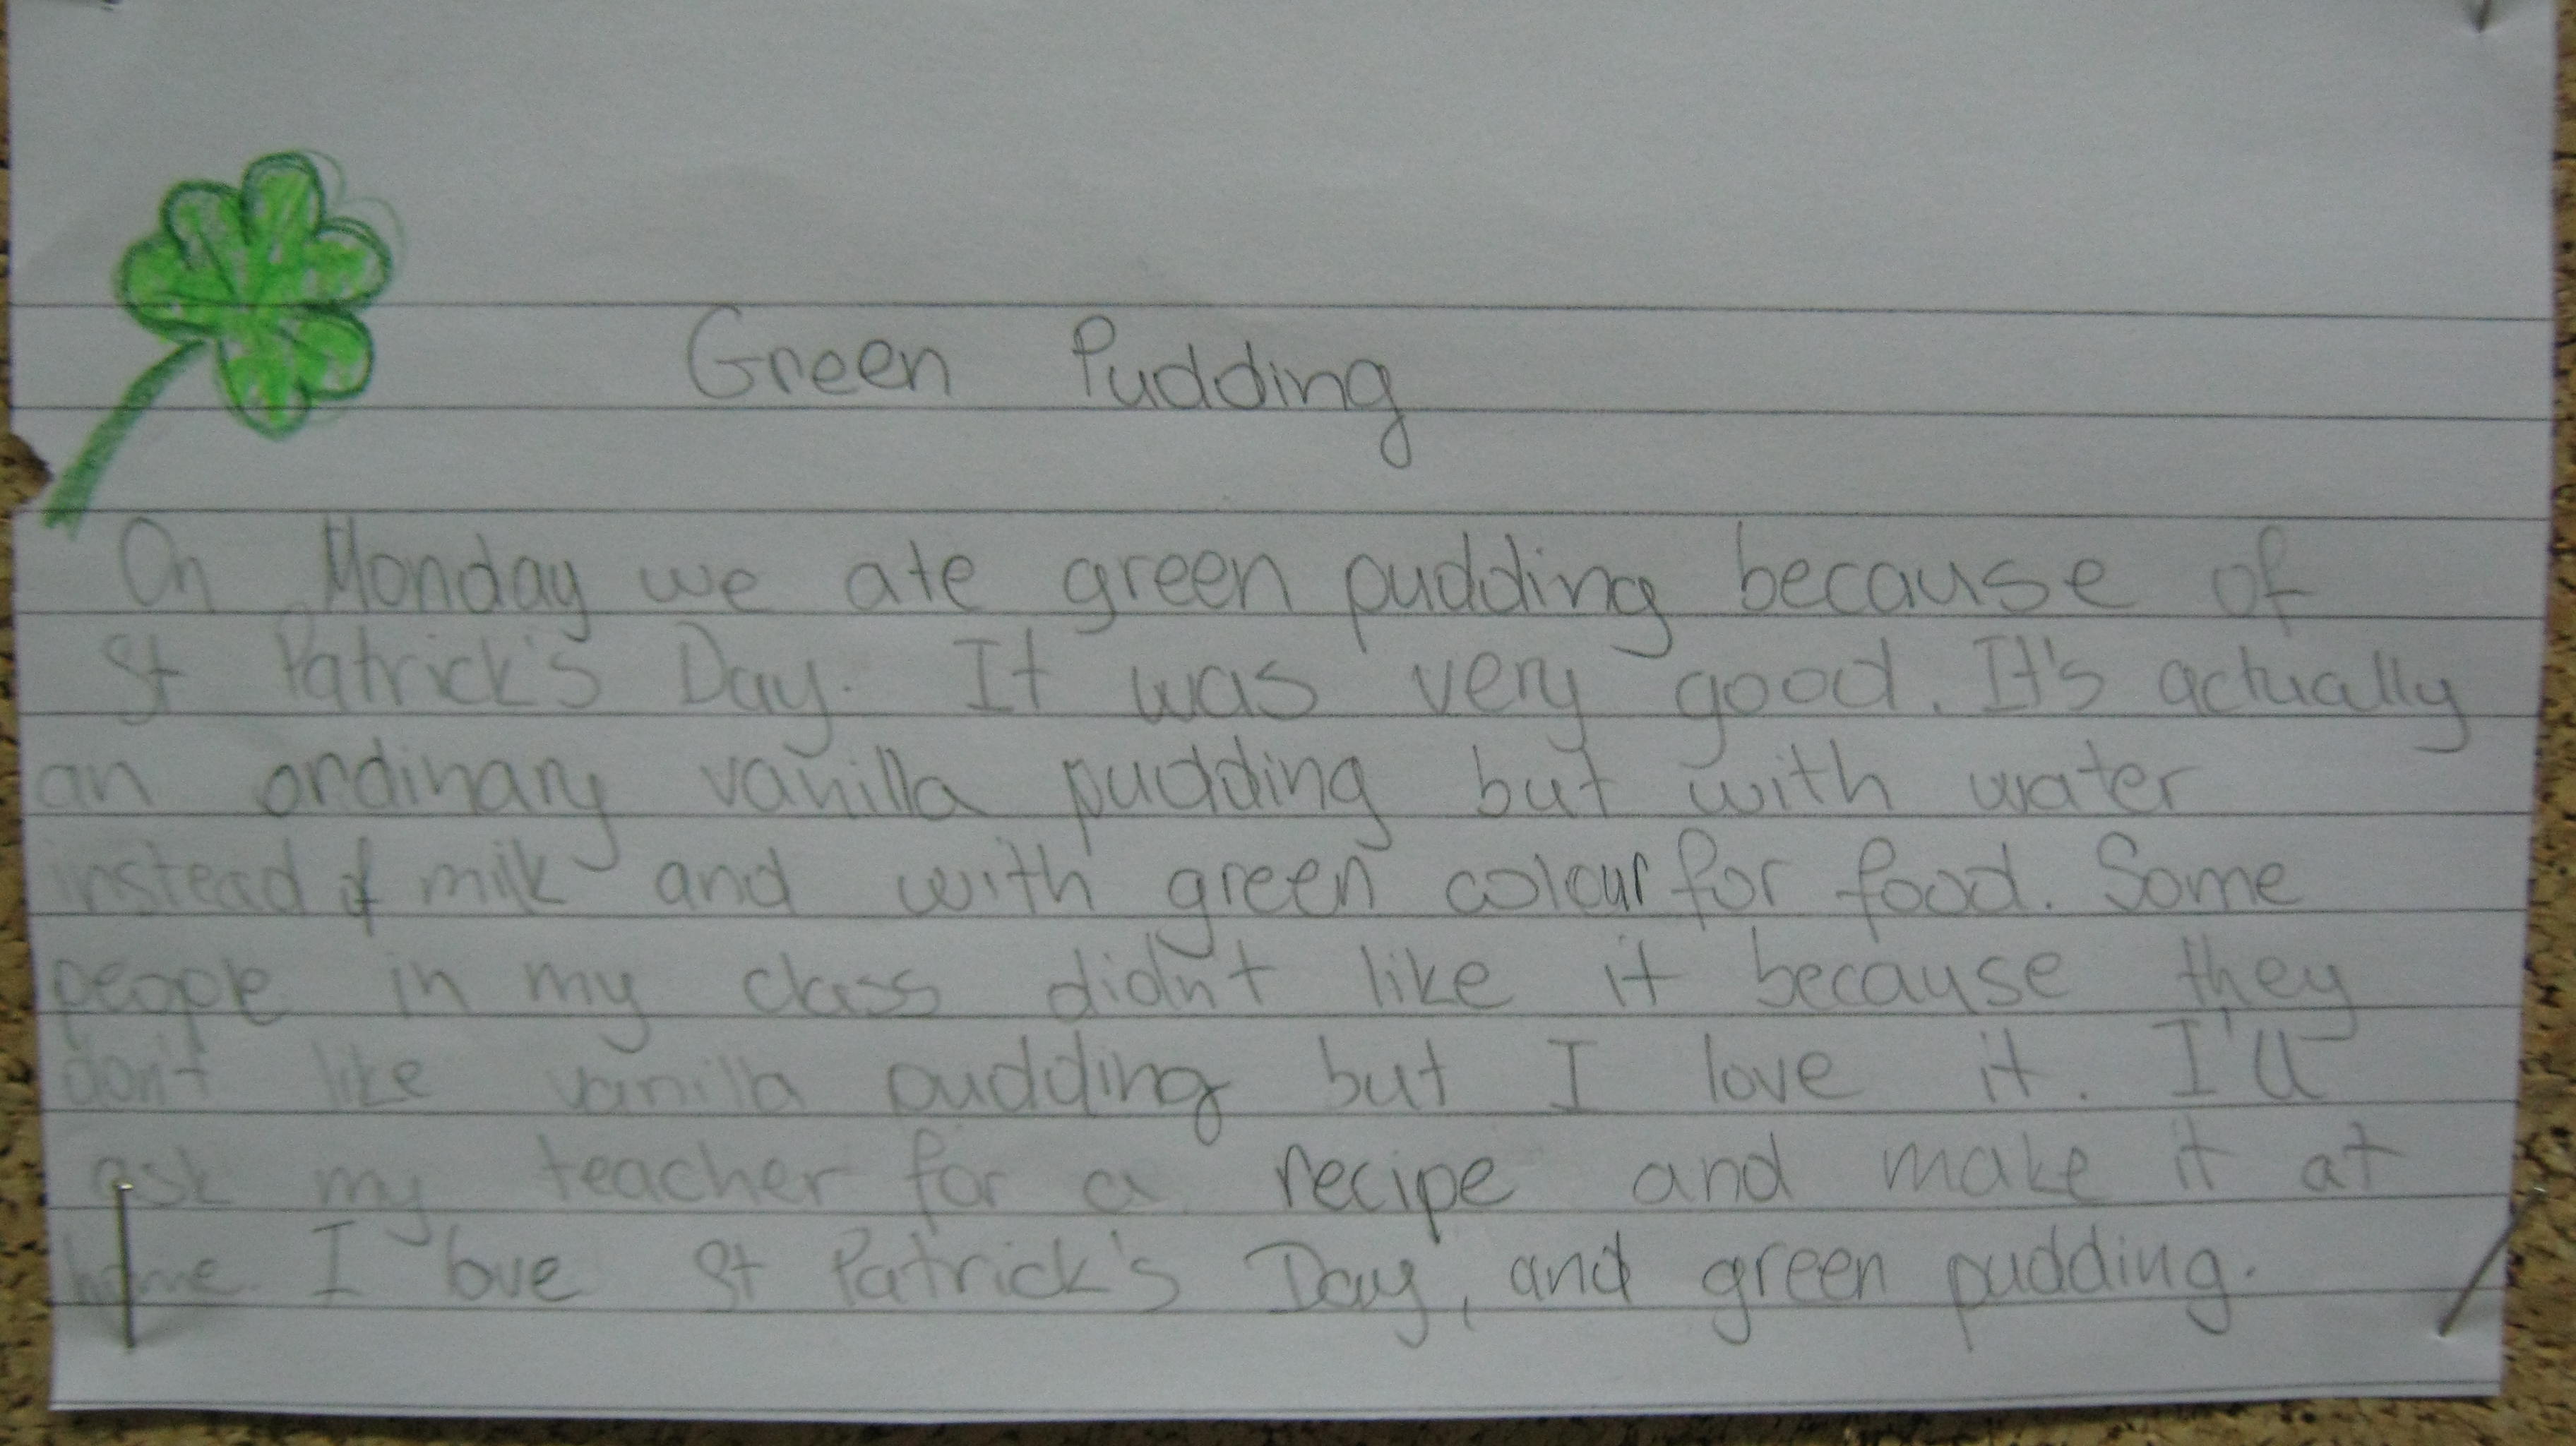 Green Pudding
On Monday we ate green pudding because of
St Patrick's Day. It was very good. It's actually
an ordinary vanilla pudding but with water
instead of milk and with green colour for food. Some
people in my class didn't like it because they
don't like vanilla pudding but I love it. I'll
ask my teacher for a recipe and make it at
home. I love St Patrick's Day, and green pudding.